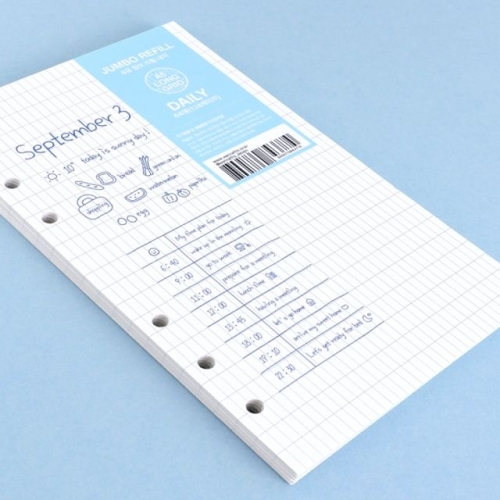 JUMBO REFILL
A6
LONG
GRID
DAILY
September 3
10° today is sunny day!
bread
green onion
shopping
watermelon
paprika
egg
My time plan for today
6:40 wake up in the morning
9:00 go to work
11:00 prepare for a meeting
12:00 lunch time
13:45 having a meeting
18:00 let's go home
19:20 arrive my sweet home
22:30 Let's get ready for bed